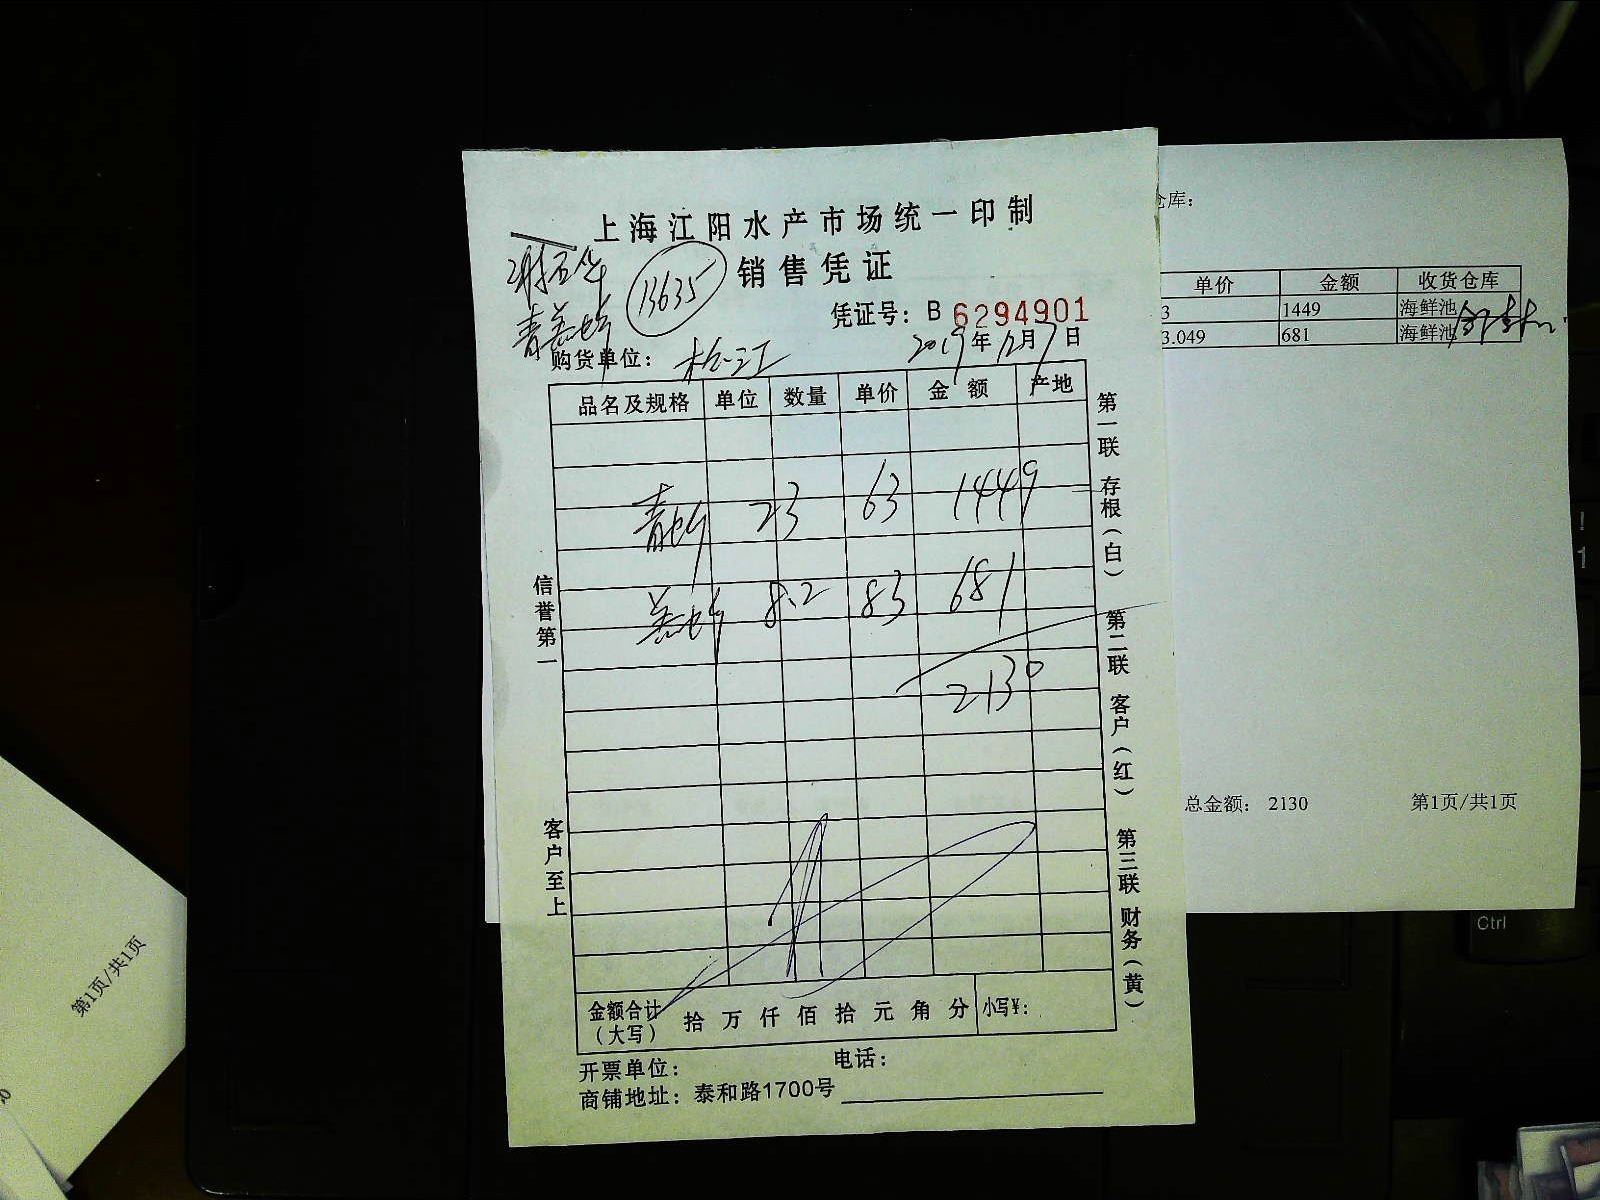 上海江阳水产市场统一印制
销售凭证
13635
凭证号：B 6294901
2019年12月7日
购货单位：松江
品名及规格 单位 数量 单价 金额 产地
青蛤 23 63 1449
8.2 83 681
2130
金额合计（大写） 拾 万 仟 佰 拾 元 角 分 小写￥：
开票单位： 电话：
商铺地址：泰和路1700号
信誉第一
客户至上
第一联 存根（白）
第二联 客户（红）
第三联 财务（黄）
仓库：
单价 金额 收货仓库
3 1449 海鲜池
3.049 681 海鲜池
总金额： 2130 第1页/共1页
第1页/共1页
Ctrl